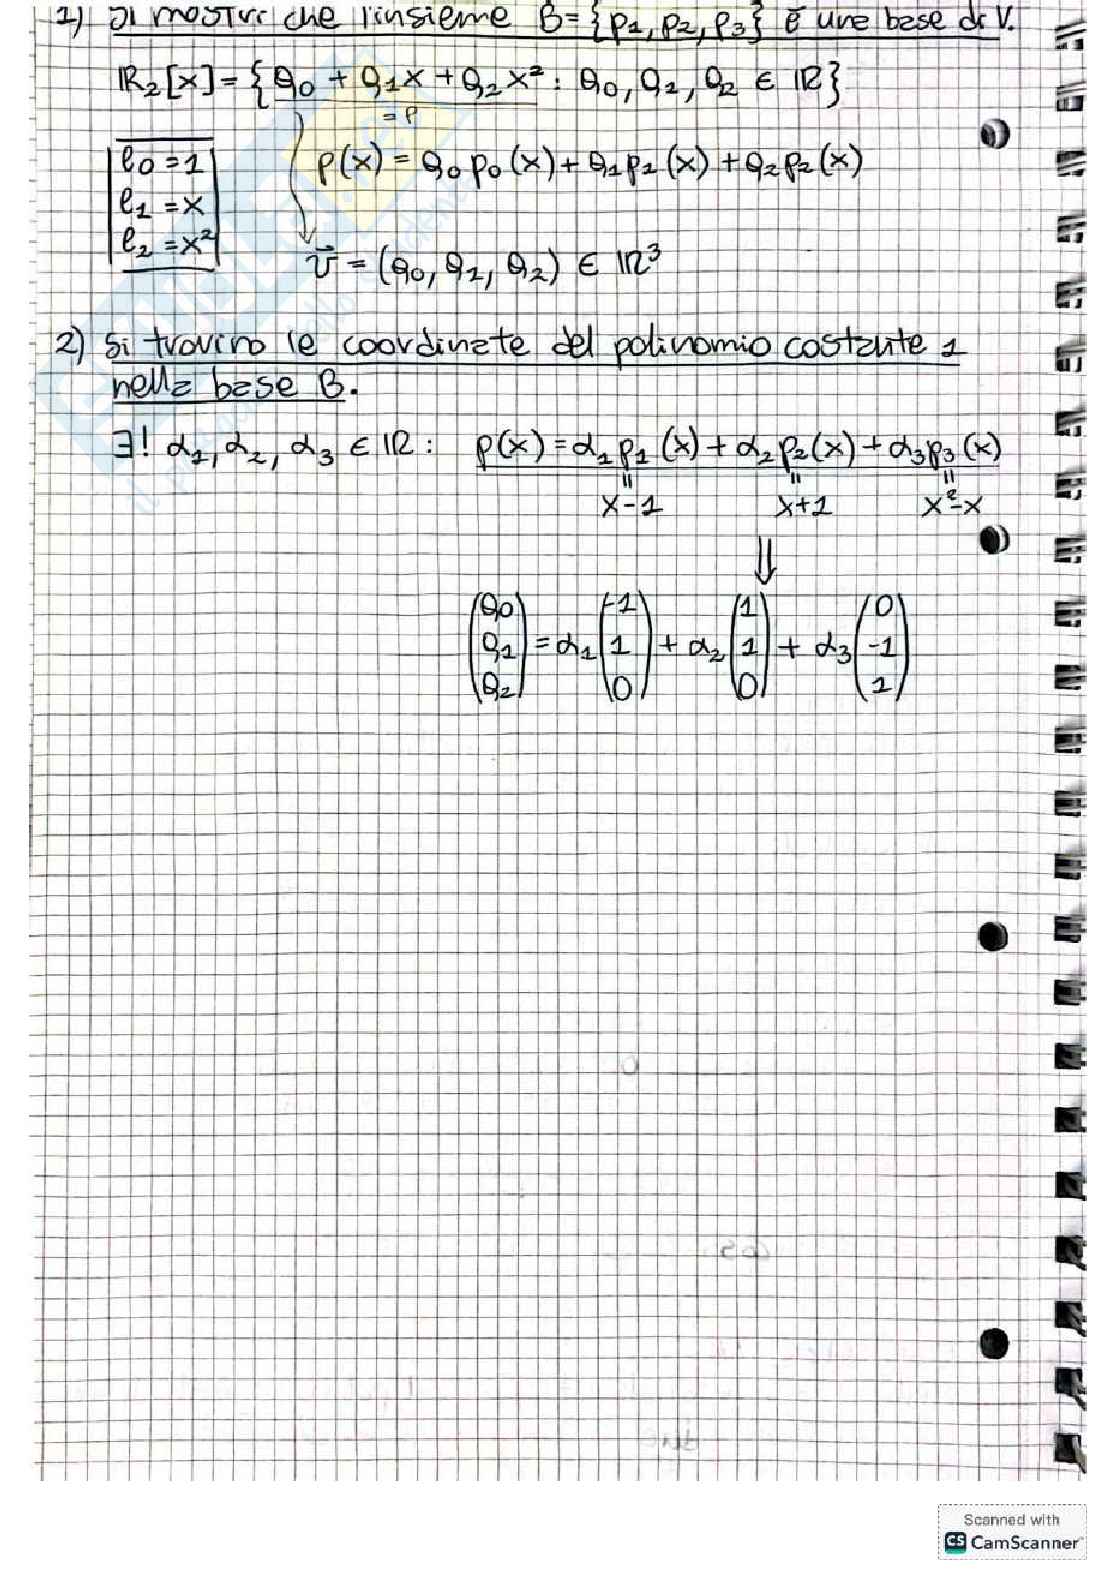 1) Si mostri che l'insieme B={p1, p2, p3} è una base di V.
ℝ2[x]={a0 + a1x + a2x² : a0, a1, a2 ∈ ℝ}
=P
e0=1
p(x) = a0p0(x)+a1p1(x)+a2p2(x)
e1=x
e2=x²
v⃗ = (a0, a1, a2) ∈ ℝ³
2) Si trovino le coordinate del polinomio costante 1
nella base B.
∃! α1, α2, α3 ∈ ℝ : p(x)=α1p1(x)+α2p2(x)+α3p3(x)
= = =
x-1 x+1 x²-x
⇓
(a0) (-1) (1) (0)
(a1) = α1 (1) + α2 (1) + α3 (-1)
(a2) (0) (0) (1)
Scanned with
CS CamScanner